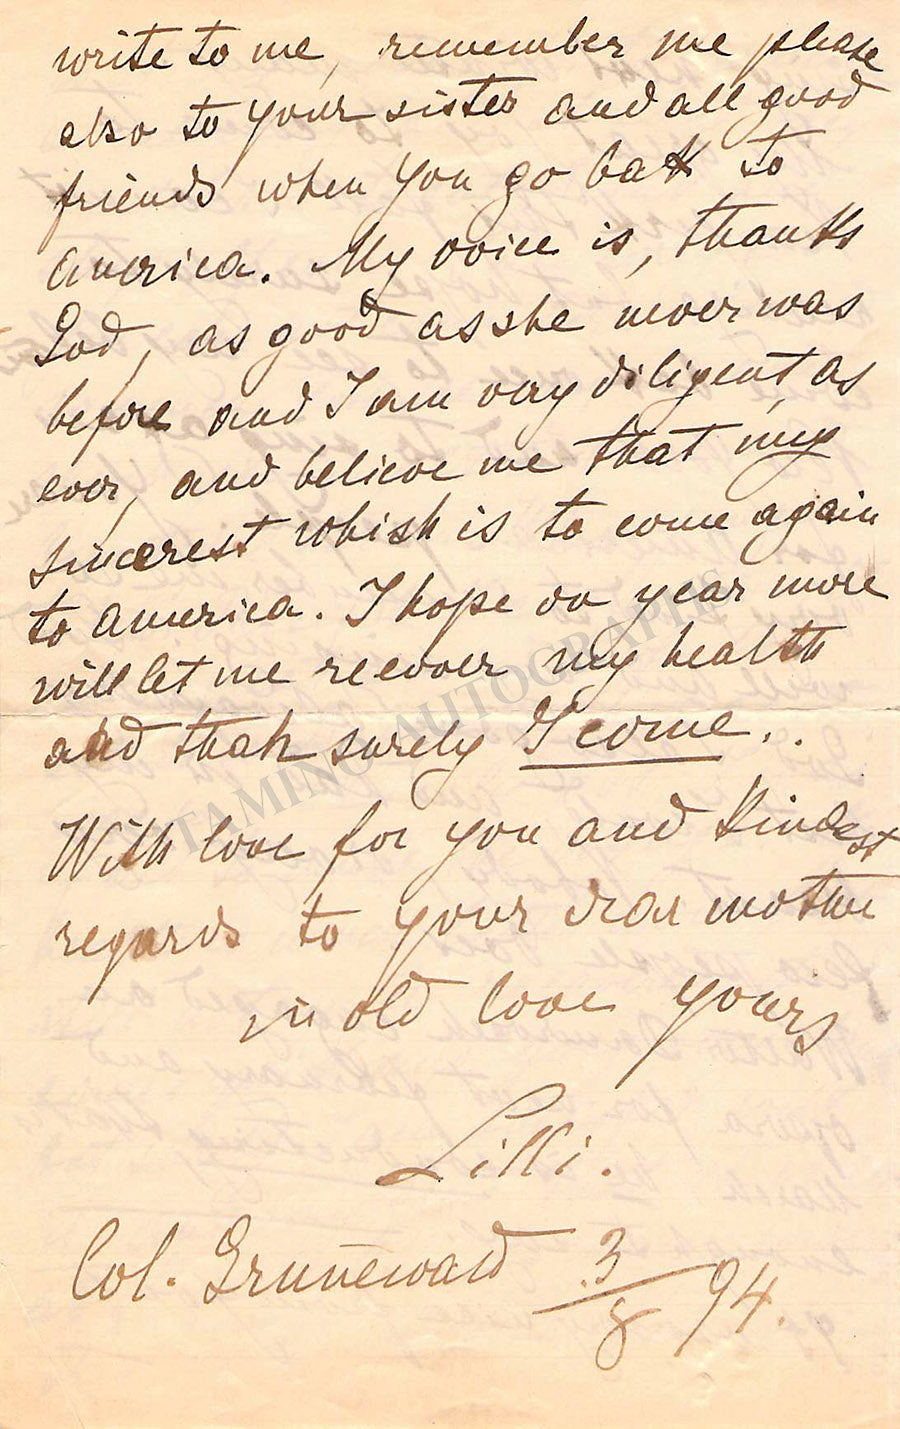 write to me, remember me please
also to your sister and all good
friends when you go bakk to
America. My voice is, thanks
God, as good as she never was
before and I am very diligent, as
ever, and believe me that my
sincerest whish is to come again
to America. I hope on year more
will let me recover my health
and thah surely I come..
With love for you and kindest
regards to your dear mother
in old love yours
Lilli.
Col. Grunewald 3/8 94.
TAMINO AUTOGRAPHS